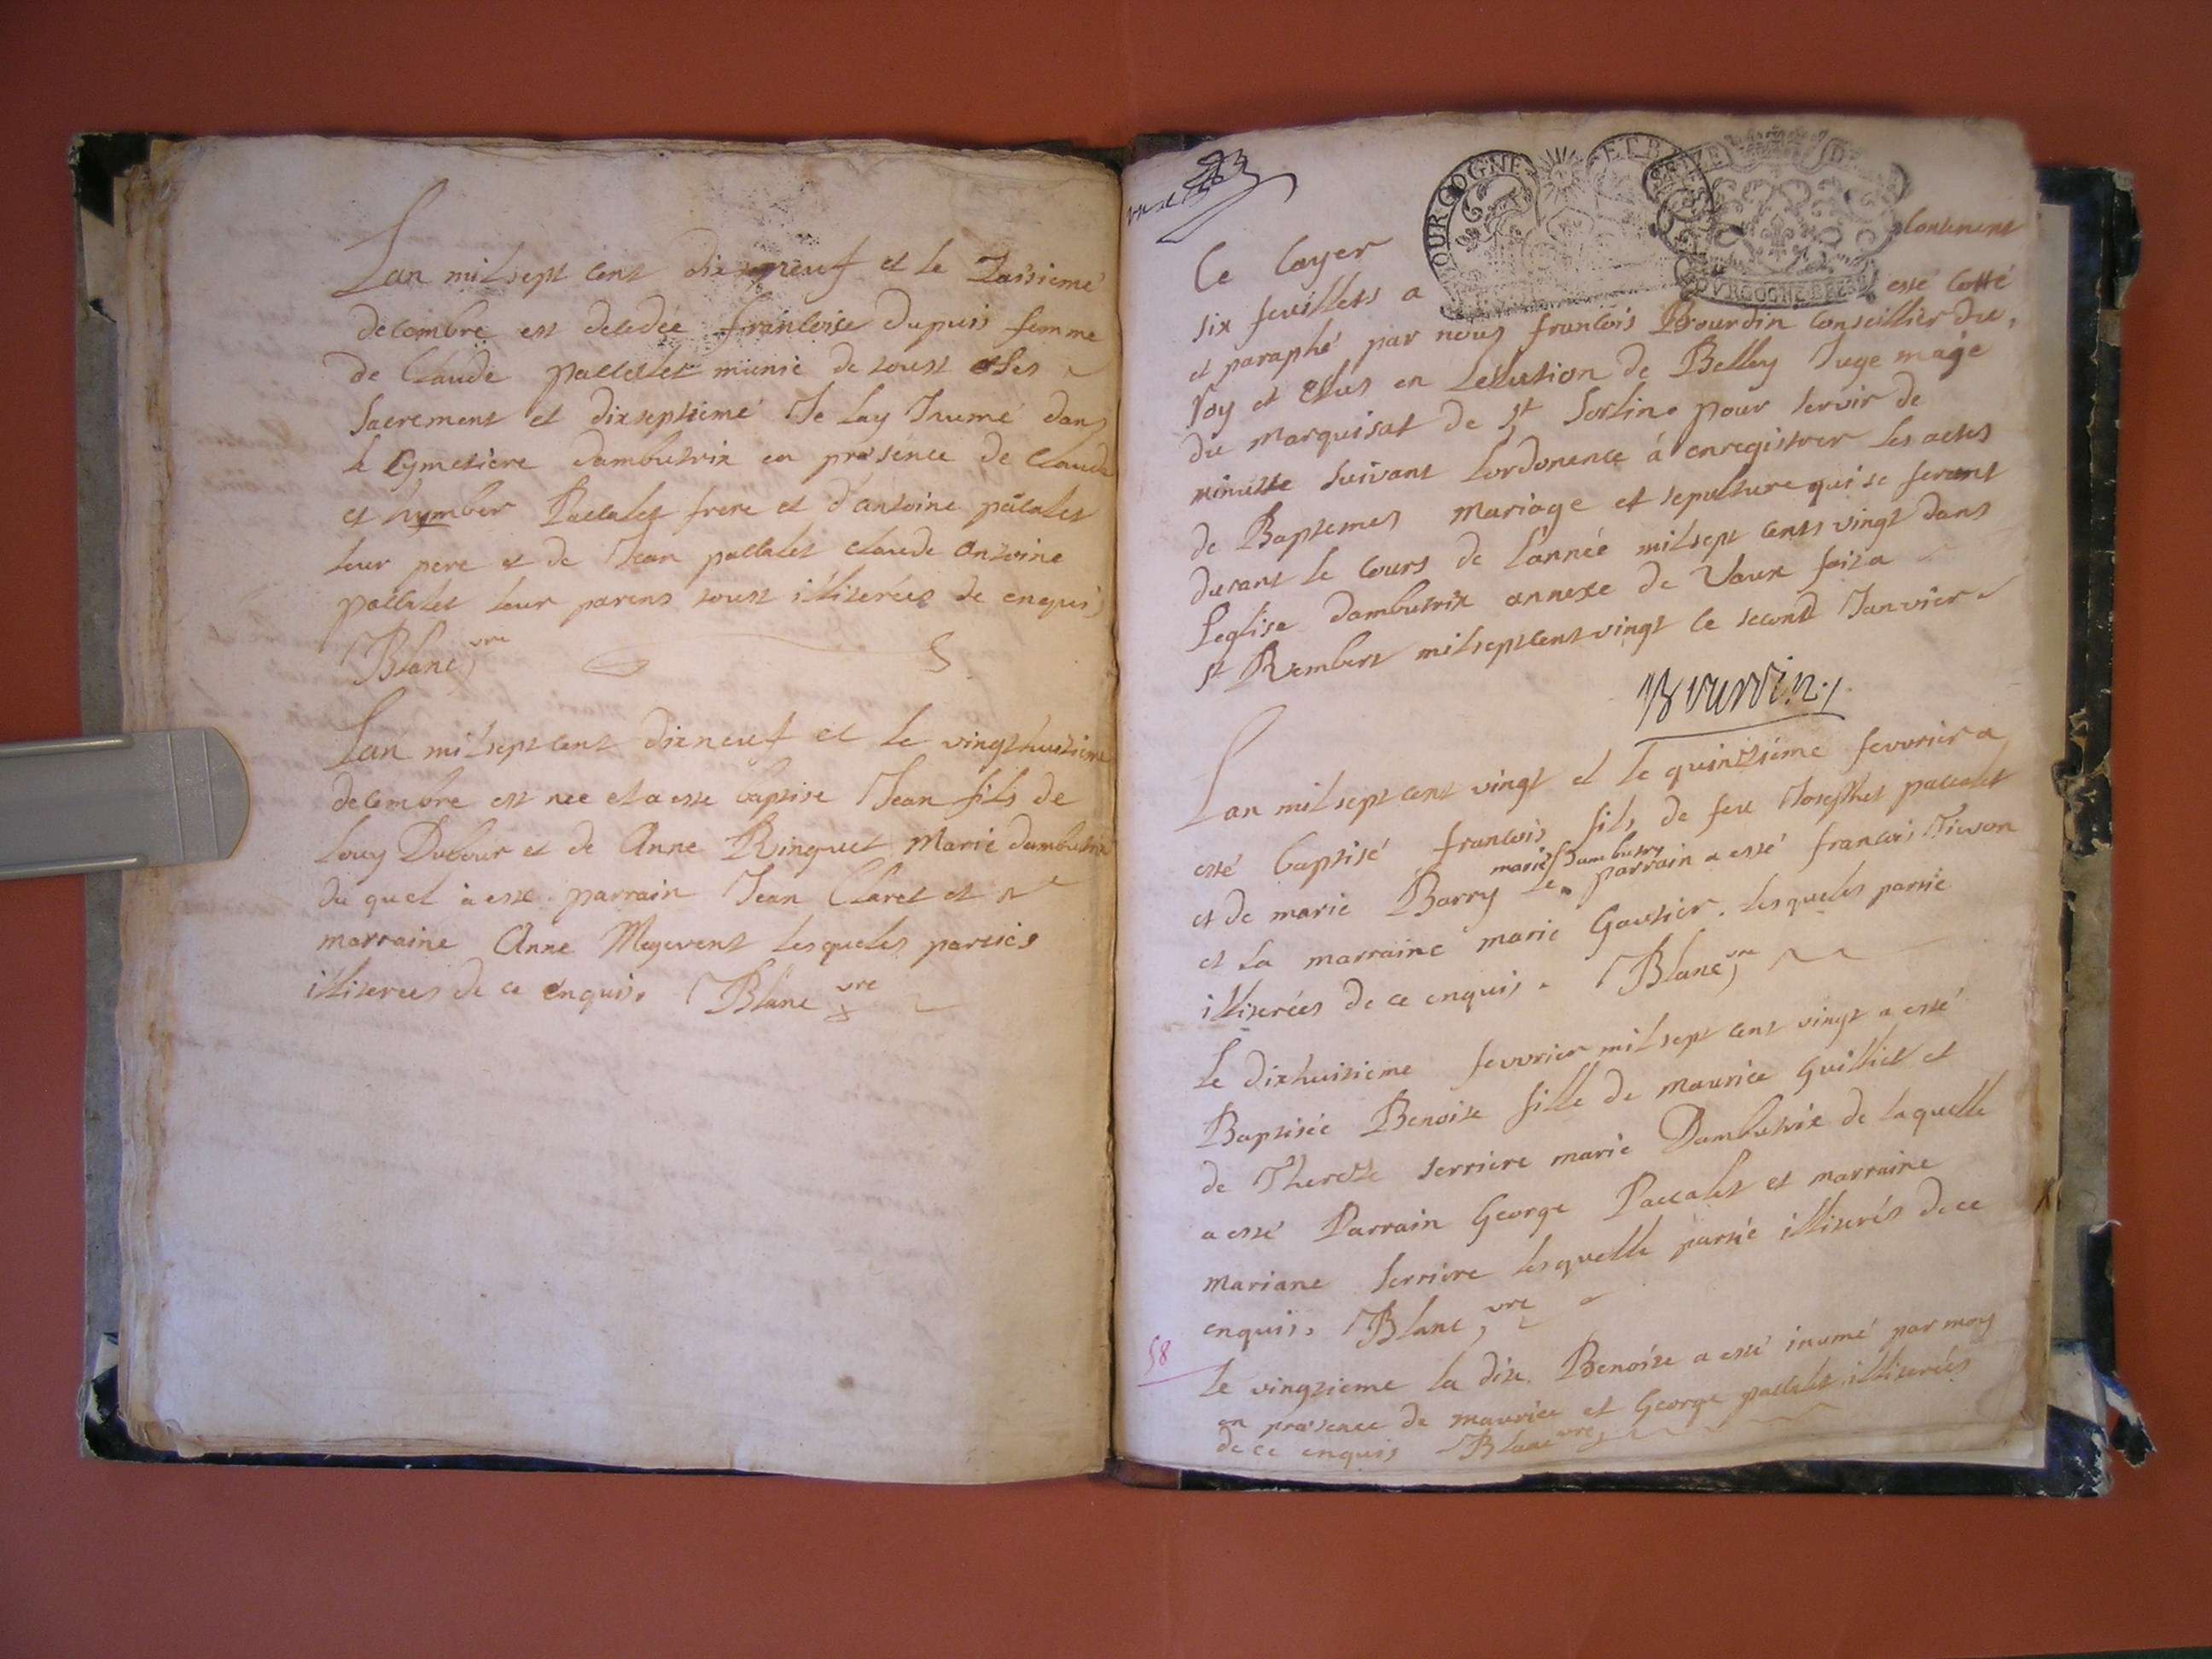 Lan mil sept cent dix neuf et le
decembre est decedée francoise Dupuis femme
de Claude paccalet munie de toust ses
sacrement et dixseptiemé Je lay Inumé dans
le Cymetiere dambutrix en présénce de Claude
et hymber Paccalet frere et d'antoine pacalet
leur pere et de Jean paccalet claude Antoine
paccalet leur parens toust illiterées de enquis
Blanc vre
Lan mil sept cent dix neuf et le vingt huitieme
decembre est nee et a esté baptise Jean fils de
Louy Dufour et de Anne Ringuet Marié dambutrix
du quel a esté parrain Jean Claret et
marraine Anne Mejevent lesqueles partiés
illiterees de ce enquis. Blanc vre
Ce Cayer contenent
BOURGOGNE ET BRESSE
six feuillets a esté cotté
et paraphé par nous francois Bourdin Conseillier du
Roy et Eslus en Lelection de Belley Juge maje
du Marquisat de St Sorlin pour servir de
minutte suivant lordonence á enregistrer les actes
de Baptemes Mariage et sepulture qui se feront
durant le cours de l'année mil sept cents vingt dans
l'eglise dambutrix annexe de Vaux fait a
st Rembert mil sept cent vingt ce second Janvier
Bourdin
Lan mil sept cent vingt et le quinziéme fevvrier a
esté baptisé francois fils de feu Josephet paccalet
mariés Dambutry
et de marie Barry le parrain a esté francois
et la marraine marie Gautier. lesqueles partie
illiterées de ce enquis. Blanc vre
Le dixhuitieme fevvrier mil sept cent vingt a esté
Baptisée Benoite fille de maurice Guilliet et
de Thereze serriere marié Dambutrix de laquelle
a esté Parrain George Paccalet et marraine
mariane serriere lesquelle partié illiterés de ce
enquis. Blanc, vre
58
le vingtieme la dite Benoite a esté inumé par moy
en présence de maurice et George paccalet illiterées
de ce enquis Blanc vre